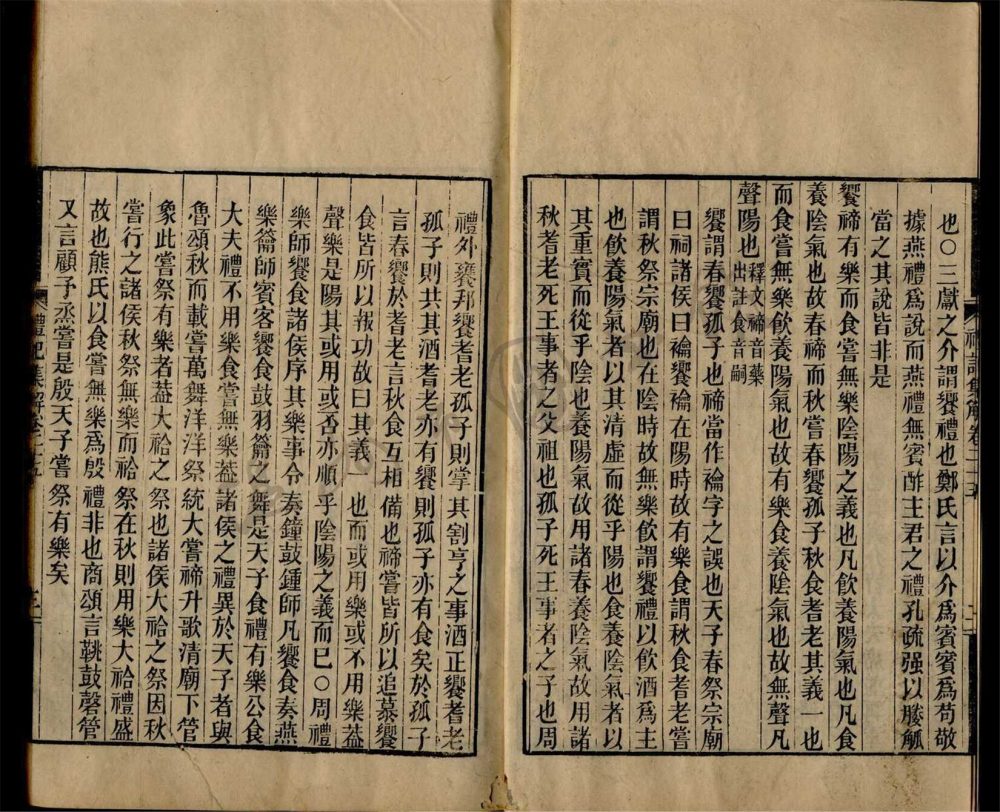 也○三獻之介謂饗禮也鄭氏言以介爲賓賓爲苟敬
據燕禮爲說而燕禮無賓酢主君之禮孔疏强以媵觚
當之其說皆非是
饗禘有樂而食嘗無樂陰陽之義也凡飲養陽氣也凡食
養陰氣也故春禘而秋嘗春饗孤子秋食耆老其義一也
而食嘗無樂飲養陽氣也故有樂食養陰氣也故無聲凡
聲陽也釋文禘音藥出註食音嗣
饗謂春饗孤子也禘當作禴字之誤也天子春祭宗廟
曰祠諸侯曰禴饗禴在陽時故有樂食謂秋食耆老嘗
謂秋祭宗廟也在陰時故無樂飲謂饗禮以飲酒爲主
也飲養陽氣者以其清虛而從乎陽也食養陰氣者以
其重實而從乎陰也養陽氣故用諸春養陰氣故用諸
秋耆老死王事者之父祖也孤子死王事者之子也周
禮記集解卷二十五
禮外饔邦饗耆老孤子則掌其割亨之事酒正饗耆老
孤子則共其酒耆老亦有饗則孤子亦有食矣於孤子
言春饗於耆老言秋食互相備也禘嘗皆所以追慕饗
食皆所以報功故曰其義一也而或用樂或不用樂葢
聲樂是陽其或用或否亦順乎陰陽之義而已○周禮
樂師饗食諸侯序其樂事令奏鐘鼓鍾師凡饗食奏燕
樂籥師賓客饗食鼓羽籥之舞是天子食禮有樂公食
大夫禮不用樂食嘗無樂葢諸侯之禮異於天子者與
魯頌秋而載嘗萬舞洋洋祭統大嘗禘升歌清廟下管
象此嘗祭有樂者葢大祫之祭也諸侯大祫之祭因秋
嘗行之諸侯秋祭無樂而祫祭在秋則用樂大祫禮盛
故也熊氏以食嘗無樂爲殷禮非也商頌言鞉鼓磬管
又言顧予烝嘗是殷天子嘗祭有樂矣